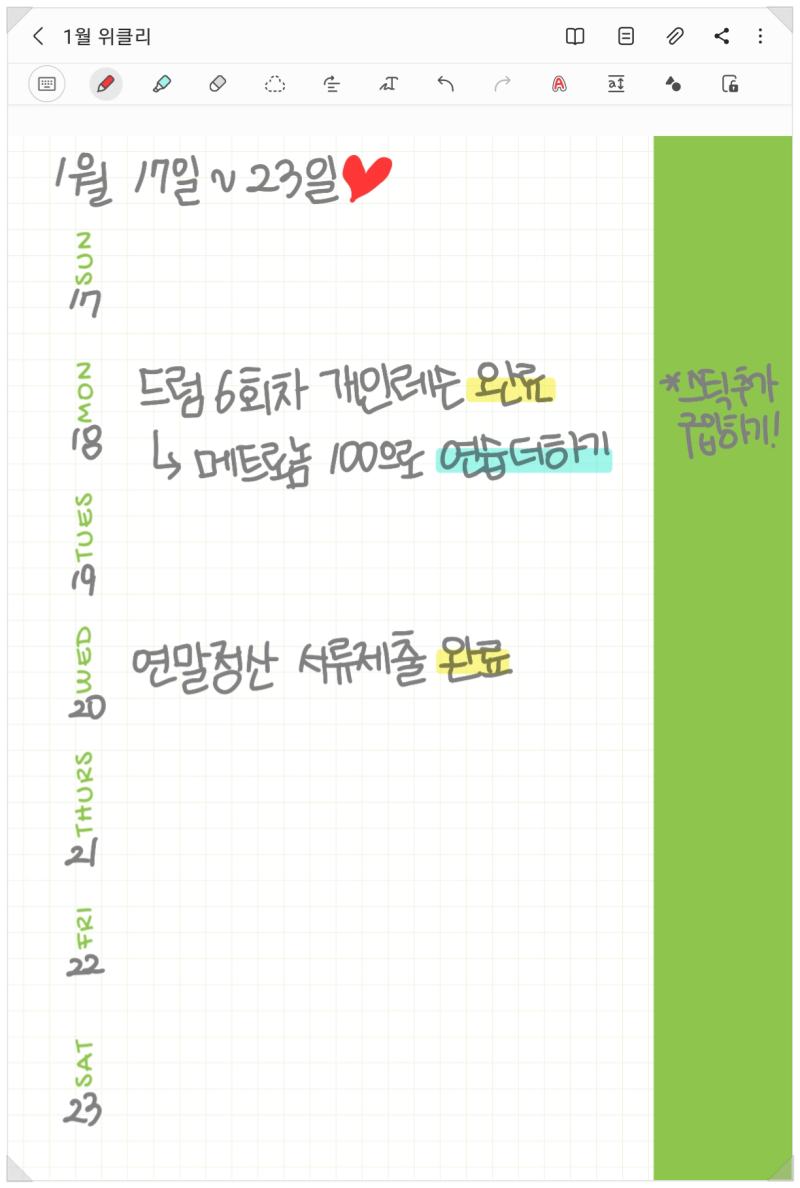 1월 위클리
1월 17일 ~ 23일
SUN
17
MON
18
드럼 6회차 개인레슨 완료
↳ 메트로놈 100으로 연습더하기
*스틱추가
구입하기!
TUES
19
WED
20
연말정산 서류제출 완료
THURS
21
FRI
22
SAT
23